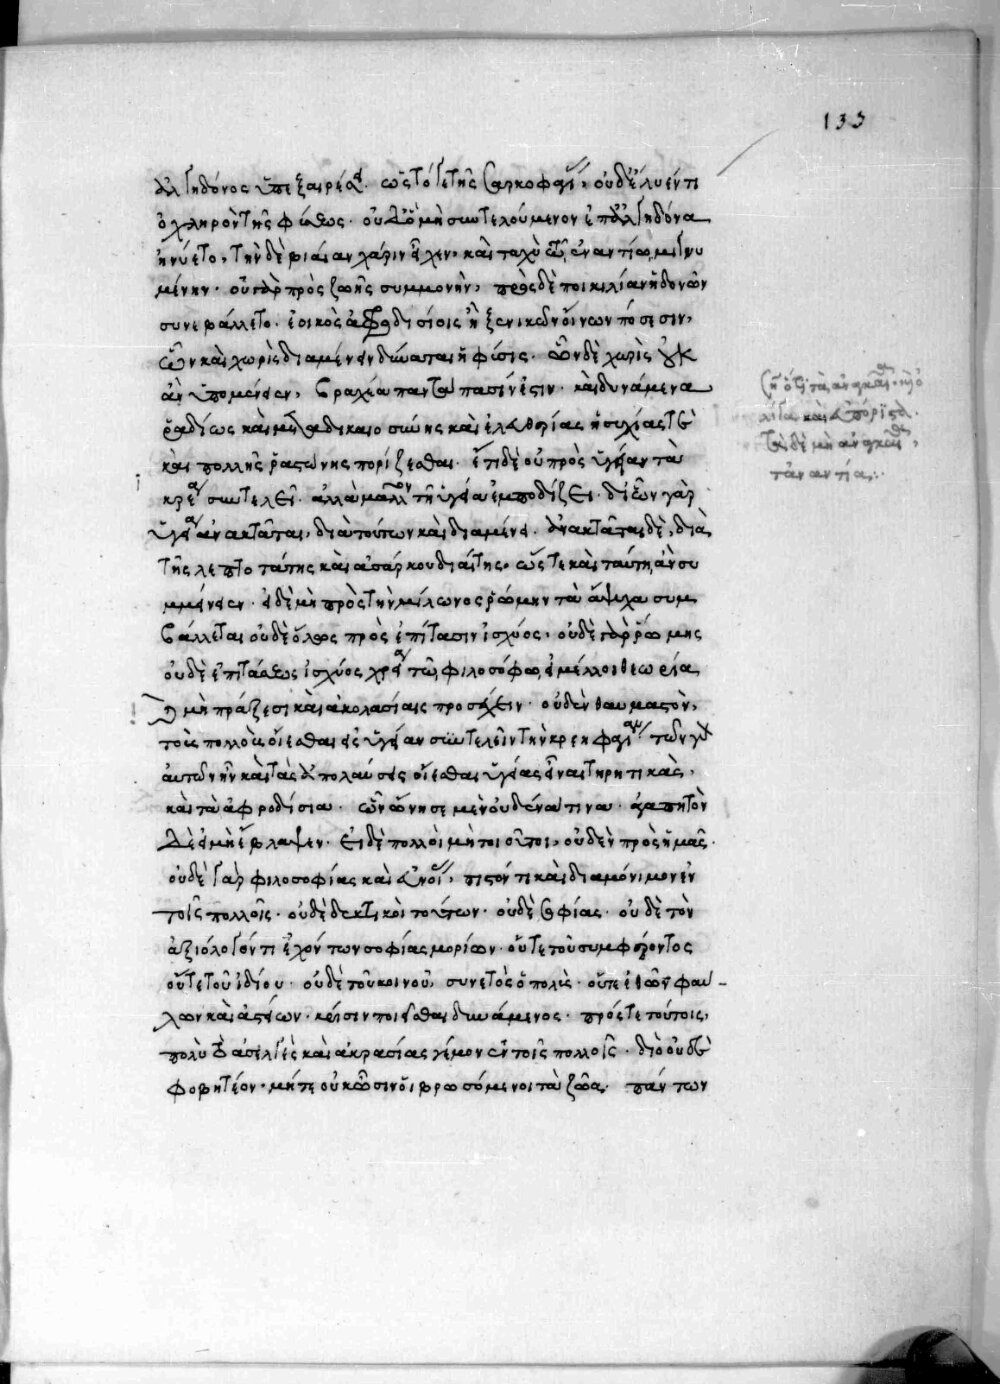 133
ἀλγηδόνος ὑπεξαιρέσει. ὥστό γε τῆς σαρκοφαγίας, οὐδὲ ἔλυέν τι
ὀχληρὸν τῆς φύσεως. οὐδὃ μὴ συντελούμενον ἐπ' ἀλγηδόνα
ἠνύετο, τὴν δὲ βιαίαν χάριν εἶχεν, καὶ ταχὺ τῷ ἐναντίῳ μιγνυ
μένην. οὐ γὰρ πρὸς ζωῆς συμμονὴν, πρὸς δὲ ποικιλίαν ἡδονῶν
συνεβάλλετο. ἐοικὸς ἀφροδισίοις ἢ ξενικῶν οἴνων πόσεσιν,
ὧν καὶ χωρὶς διαμένειν δύναται ἡ φύσις. ὧν δὲ χωρὶς οὐκ
ἂν ὑπομείνειεν, βραχέα παντάπασίν ἐστιν. καὶ δυνάμενα
ῥαδίως καὶ μετὰ δικαιοσύνης καὶ ἐλευθερίας ἡσυχίας τε
καὶ πολλῆς ῥᾳστώνης πορίζεσθαι. ἔτι δὲ οὐ πρὸς ὑγείαν τὰ
κρέα συντελεῖ. ἀλλὰ μᾶλλον τῇ ὑγείᾳ ἐμποδίζει. δι' ὧν γὰρ
ὑγεία ἀνακτᾶται, διὰ τούτων καὶ διαμένει. ἀνακτᾶται δὲ, διὰ
τῆς λεπτοτάτης καὶ ἀσάρκου διαίτης, ὥστε καὶ ταύτῃ ἂν συ
μμένειεν. εἰ δὲ μὴ πρὸς τὴν μίλωνος ῥώμην τὰ ἄψυχα συμ
βάλλεται οὐδὲ ὅλως πρὸς ἐπίτασιν ἰσχύος, οὐδὲ γὰρ ῥώμης
οὐδὲ ἐπιτάσεως ἰσχύος χρεία τῷ φιλοσόφῳ, εἰ μέλλοι θεωρία
καὶ μὴ πράξεσι καὶ ἀκολασίαις προσέχειν. οὐδὲν θαυμαστὸν,
τοὺς πολλοὺς οἴεσθαι εἰς ὑγείαν συντελεῖν τὴν κρεηφαγίαν. τῶν γὰρ
αὐτῶν ἦν καὶ τὰς ἀπολαύσεις οἴεσθαι ὑγείας εἶναι τηρητικὰς,
καὶ τὰ ἀφροδίσια. ὧν ὤνησε μὲν οὐδένα τινα. ἀγαπητὸν
δὲ εἰ μὴ ἔβλαψεν. εἰ δὲ πολλοὶ μὴ τοιοῦτοι, οὐδὲν πρὸς ἡμᾶς.
οὐδὲ γὰρ φιλοσοφίας καὶ εὐνοίας, πιστόν τι καὶ διαμόνιμον ἐν
τοῖς πολλοῖς. οὐδὲ δεκτικοὶ τούτων. οὐδὲ σοφίας. οὐδὲ τὸν
ἀξιόλογόν τι ἐχόντων σοφίας μορίων. οὔτε τοῦ συμφέροντος
οὔτε τοῦ ἰδίου. οὐδὲ τοῦ κοινοῦ, συνετὸς ὁ πολὺς. οὔτε ἐθῶν φαύ-
λων καὶ ἀστείων. κρίσιν ποιεῖσθαι δυνάμενος. πρός τε τούτοις,
πολὺ τὸ ἀσελγὲς καὶ ἀκρασίας γέμον ἐν τοῖς πολλοῖς. διὸ οὐδὲ
φοβητέον. μήτε οὐκ ὦσιν οἱ βρωσόμενοι τὰ ζῷα. πάντων
ση ὅτι τὰ ἀναγκαῖα, καὶ ὀ
λίγα καὶ εὐπόριστα.
τὰ δὲ μὴ ἀναγκαῖα,
τἀναντία:.